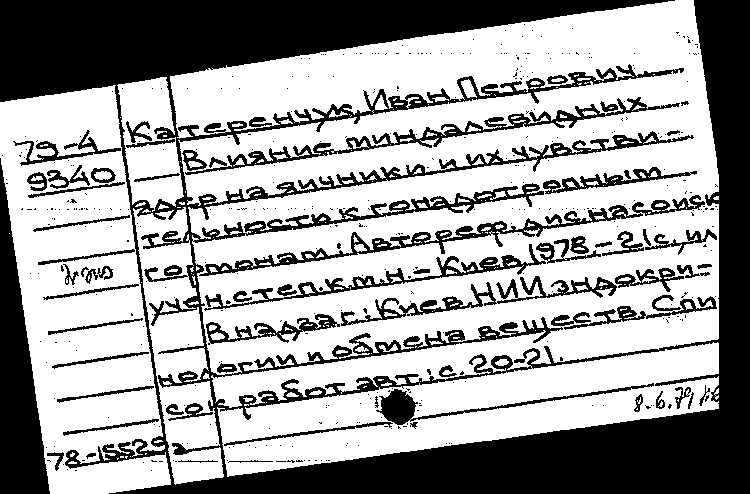 79-4 Катеренчук, Иван Петрович.
9340 Влияние миндалевидных
ядер на яичники и их чувстви-
тельности к гонадотропным
гормонам: Автореф. дис. на соиск
учен. степ. к.м.н. - Киев, 1978. - 21с., ил
В надзаг: Киев. НИИ эндокри-
нологии и обмена веществ. Спи
сок работ авт.: с. 20-21.
8.6.79
78-15529а